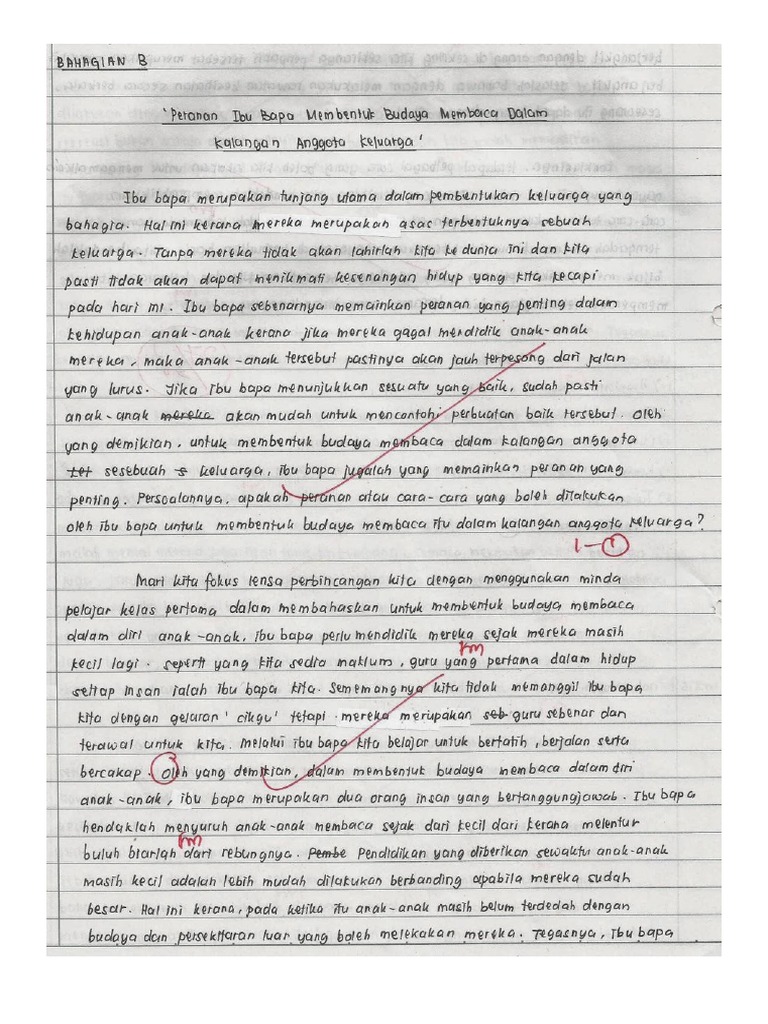 BAHAGIAN B
'Peranan Ibu Bapa Membentuk Budaya Membaca Dalam
Kalangan Anggota Keluarga'
Ibu bapa merupakan tunjang utama dalam pembentukan keluarga yang
bahagia. Hal ini kerana mereka merupakan asas terbentuknya sebuah
keluarga. Tanpa mereka tidak akan lahirlah kita ke dunia ini dan kita
pasti tidak akan dapat menikmati kesenangan hidup yang kita kecapi
pada hari ini. Ibu bapa sebenarnya memainkan peranan yang penting dalam
kehidupan anak-anak kerana jika mereka gagal mendidik anak-anak
mereka, maka anak-anak tersebut pastinya akan jauh terpesong dari jalan
yang lurus. Jika ibu bapa menunjukkan sesuatu yang baik, sudah pasti
anak-anak mereka akan mudah untuk mencontohi perbuatan baik tersebut. Oleh
yang demikian, untuk membentuk budaya membaca dalam kalangan anggota
tet sesebuah s keluarga, ibu bapa jugalah yang memainkan peranan yang
penting. Persoalannya, apakah peranan atau cara-cara yang boleh dilakukan
oleh ibu bapa untuk membentuk budaya membaca itu dalam kalangan anggota keluarga?
1-1
Mari kita fokus lensa perbincangan kita dengan menggunakan minda
pelajar kelas pertama dalam membahaskan untuk membentuk budaya membaca
dalam diri anak-anak, ibu bapa perlu mendidik mereka sejak mereka masih
km
kecil lagi. Seperti yang kita sedia maklum, guru yang pertama dalam hidup
setiap insan ialah ibu bapa kita. Sememangnya kita tidak memanggil ibu bapa
kita dengan gelaran 'cikgu' tetapi mereka merupakan seb guru sebenar dan
terawal untuk kita. Melalui ibu bapa kita belajar untuk bertatih, berjalan serta
bercakap. Oleh yang demikian, dalam membentuk budaya membaca dalam diri
anak-anak, ibu bapa merupakan dua orang insan yang bertanggungjawab. Ibu bapa
hendaklah menyuruh anak-anak membaca sejak dari kecil dari kerana melentur
km
buluh biarlah dari rebungnya. Pembe Pendidikan yang diberikan sewaktu anak-anak
masih kecil adalah lebih mudah dilakukan berbanding apabila mereka sudah
besar. Hal ini kerana, pada ketika itu anak-anak masih belum terdedah dengan
budaya dan persekitaran luar yang boleh melekakan mereka. Tegasnya, ibu bapa